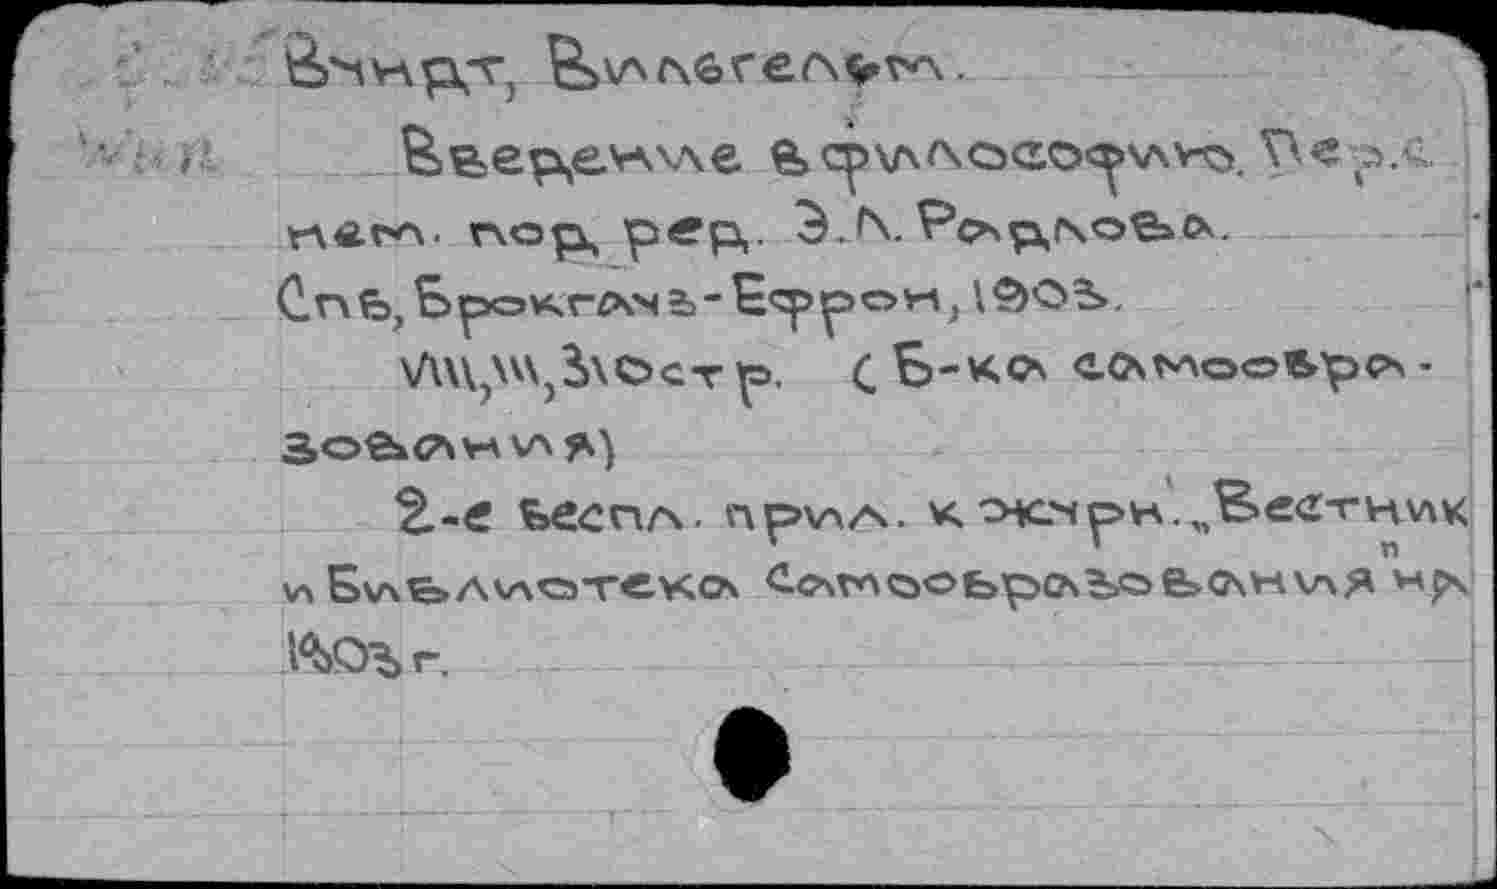 Вундт, Вильгельм.
Введение в философию. Пер. с
нем. под ред. Э.Л. Радлова.
Спб, Брокгауз-Ефрон, 1903.
310стр. (Б-ка самообра-
зования)
2-е беспл. прил. к журн. „Вестник
и Библиотека Самообразования" на
1903 г.